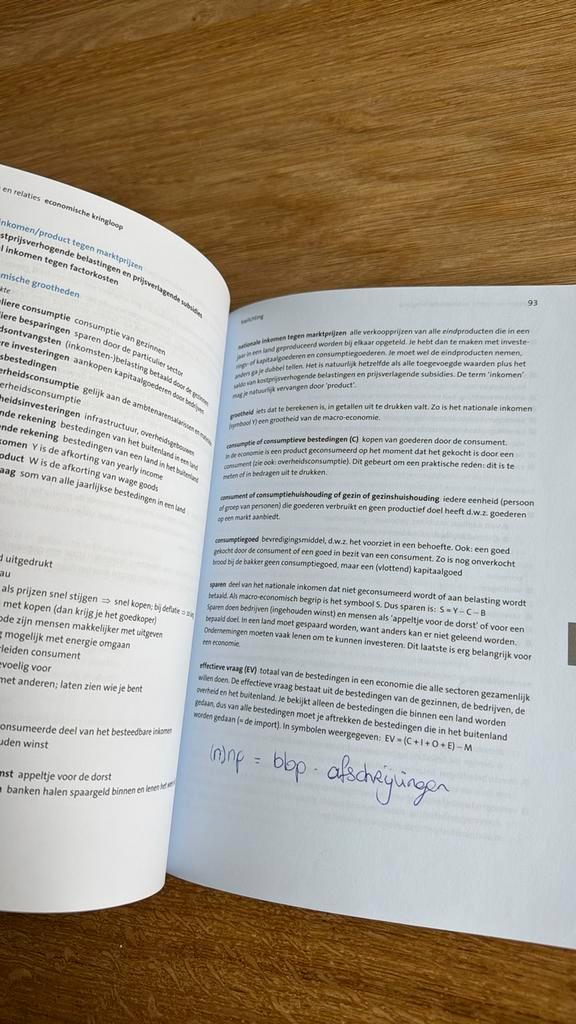 en relaties economische kringloop
inkomen/product tegen marktprijzen
stprijsverhogende belastingen en prijsverlagende subsidies
l inkomen tegen factorkosten
mische grootheden
kte
liere consumptie consumptie van gezinnen
liere besparingen sparen door de particulier sector
dsontvangsten (inkomsten-)belasting betaald door de gezinnen
re investeringen aankopen kapitaalgoederen door bedrijven
sbestedingen
erheidsconsumptie gelijk aan de ambtenarensalarissen en
erheidsconsumptie
heidsinvesteringen infrastructuur, overheidsgebouwen
nde rekening bestedingen van het buitenland in een land
ende rekening bestedingen van een land in het buitenland
komen Y is de afkorting van yearly income
oduct W is de afkorting van wage goods
aag som van alle jaarlijkse bestedingen in een land
d uitgedrukt
au
als prijzen snel stijgen ⇒ snel kopen; bij deflatie
met kopen (dan krijg je het goedkoper)
ode zijn mensen makkelijker met uitgeven
g mogelijk met energie omgaan
rleiden consument
evoelig voor
met anderen; laten zien wie je bent
onsumeerde deel van het besteedbare inkomen
uden winst
nst appeltje voor de dorst
banken halen spaargeld binnen en lenen het
93
toelichting
nationale inkomen tegen marktprijzen alle verkoopprijzen van alle eindproducten die in een
jaar in een land geproduceerd worden bij elkaar opgeteld. Je hebt dan te maken met investe-
rings- of kapitaalgoederen en consumptiegoederen. Je moet wel de eindproducten nemen,
anders ga je dubbel tellen. Het is natuurlijk hetzelfde als alle toegevoegde waarden plus het
saldo van kostprijsverhogende belastingen en prijsverlagende subsidies. De term 'inkomen'
mag je natuurlijk vervangen door 'product'.
grootheid iets dat te berekenen is, in getallen uit te drukken valt. Zo is het nationale inkomen
(symbool Y) een grootheid van de macro-economie.
consumptie of consumptieve bestedingen (C) kopen van goederen door de consument.
In de economie is een product geconsumeerd op het moment dat het gekocht is door een
consument (zie ook: overheidsconsumptie). Dit gebeurt om een praktische reden: dit is te
meten of in bedragen uit te drukken.
consument of consumptiehuishouding of gezin of gezinshuishouding iedere eenheid (persoon
of groep van personen) die goederen verbruikt en geen productief doel heeft d.w.z. goederen
op een markt aanbiedt.
consumptiegoed bevredigingsmiddel, d.w.z. het voorziet in een behoefte. Ook: een goed
gekocht door de consument of een goed in bezit van een consument. Zo is nog onverkocht
brood bij de bakker geen consumptiegoed, maar een (vlottend) kapitaalgoed
sparen deel van het nationale inkomen dat niet geconsumeerd wordt of aan belasting wordt
betaald. Als macro-economisch begrip is het symbool S. Dus sparen is: S = Y – C – B
Sparen doen bedrijven (ingehouden winst) en mensen als 'appeltje voor de dorst' of voor een
bepaald doel. In een land moet gespaard worden, want anders kan er niet geleend worden.
Ondernemingen moeten vaak lenen om te kunnen investeren. Dit laatste is erg belangrijk voor
een economie.
effectieve vraag (EV) totaal van de bestedingen in een economie die alle sectoren gezamenlijk
willen doen. De effectieve vraag bestaat uit de bestedingen van de gezinnen, de bedrijven, de
overheid en het buitenland. Je bekijkt alleen de bestedingen die binnen een land worden
gedaan, dus van alle bestedingen moet je aftrekken de bestedingen die in het buitenland
worden gedaan (= de import). In symbolen weergegeven: EV = (C + I + O + E) – M
(n)np = bbp - afschrijvingen